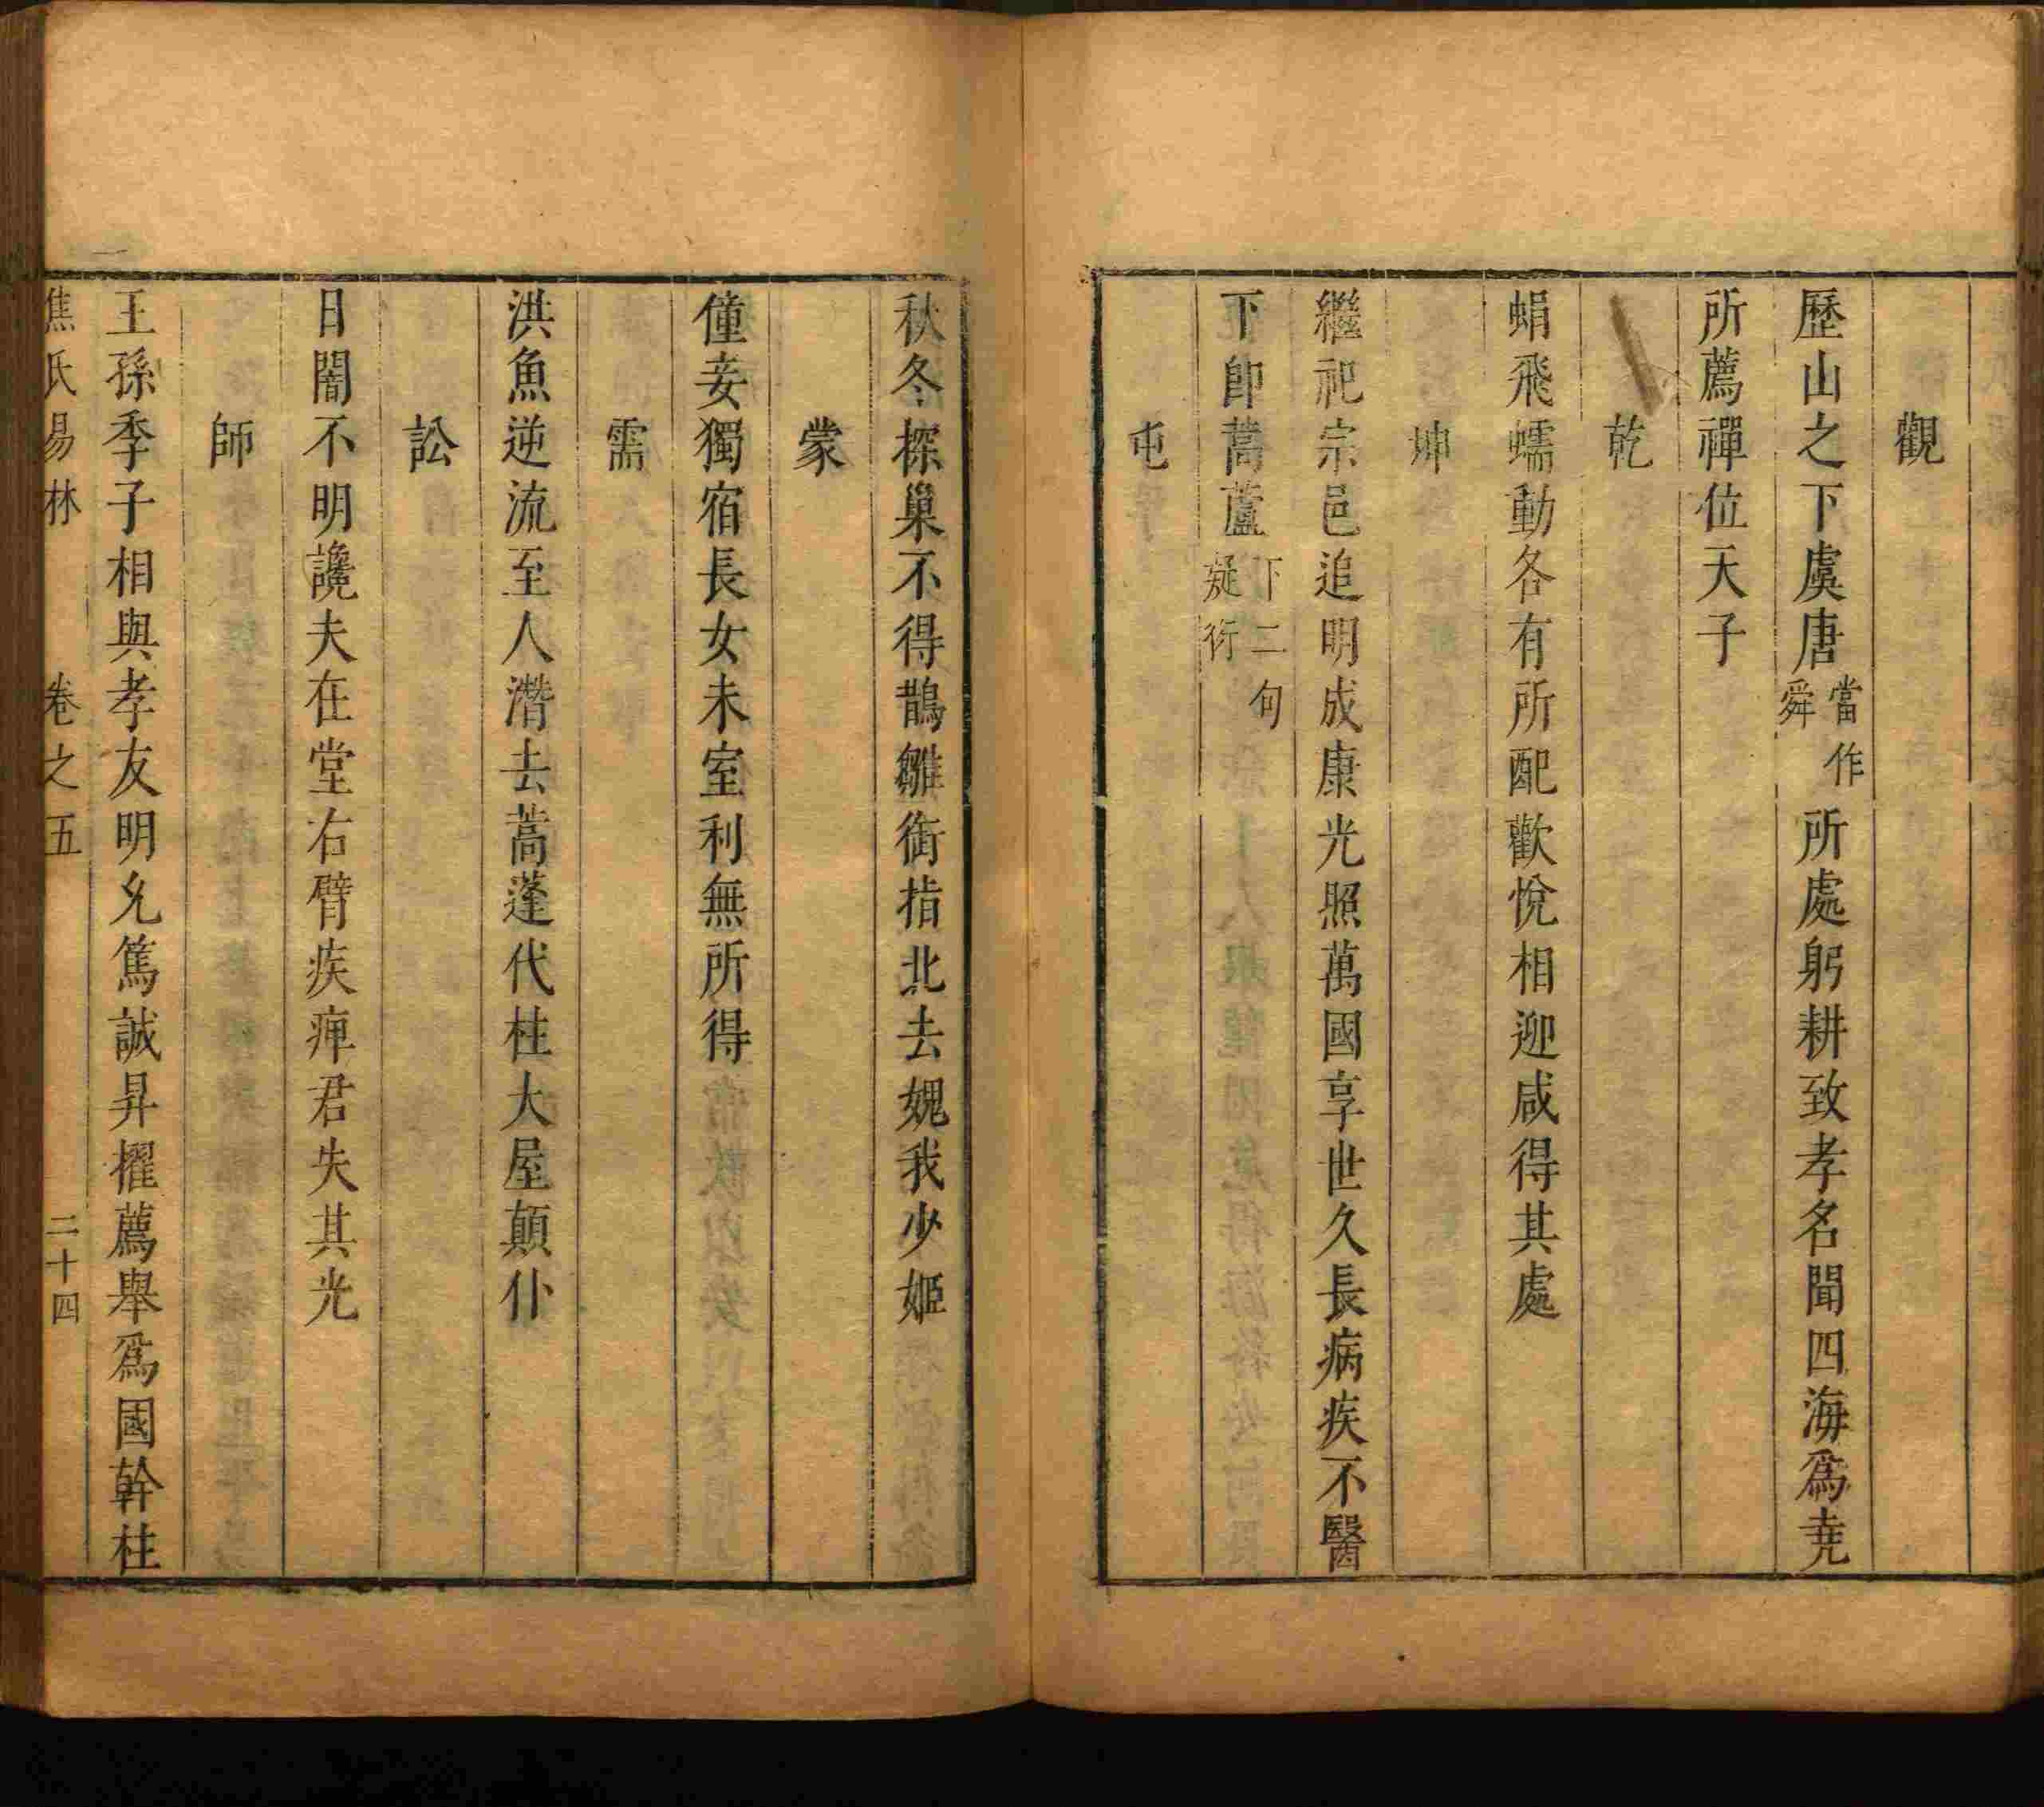 觀
歷山之下虞唐當作舜所處躬耕致孝名聞四海爲尭
所薦禪位天子
乾
蜎飛蠕動各有所配歡悅相迎咸得其處
坤
繼祀宗邑追明成康光照萬國享世久長病疾不醫
下卽蒿蘆下二句疑衍
屯
秋冬探巢不得鵲雛銜指北去媿我少姬
蒙
僮妾獨宿長女未室利無所得
需
洪魚逆流至人潛去蒿蓬代柱大屋顛仆
訟
日闇不明讒夫在堂右臂疾痺君失其光
師
王孫季子相與孝友明允篤誠昇擢薦舉爲國幹柱
焦氏易林 卷之五 二十四